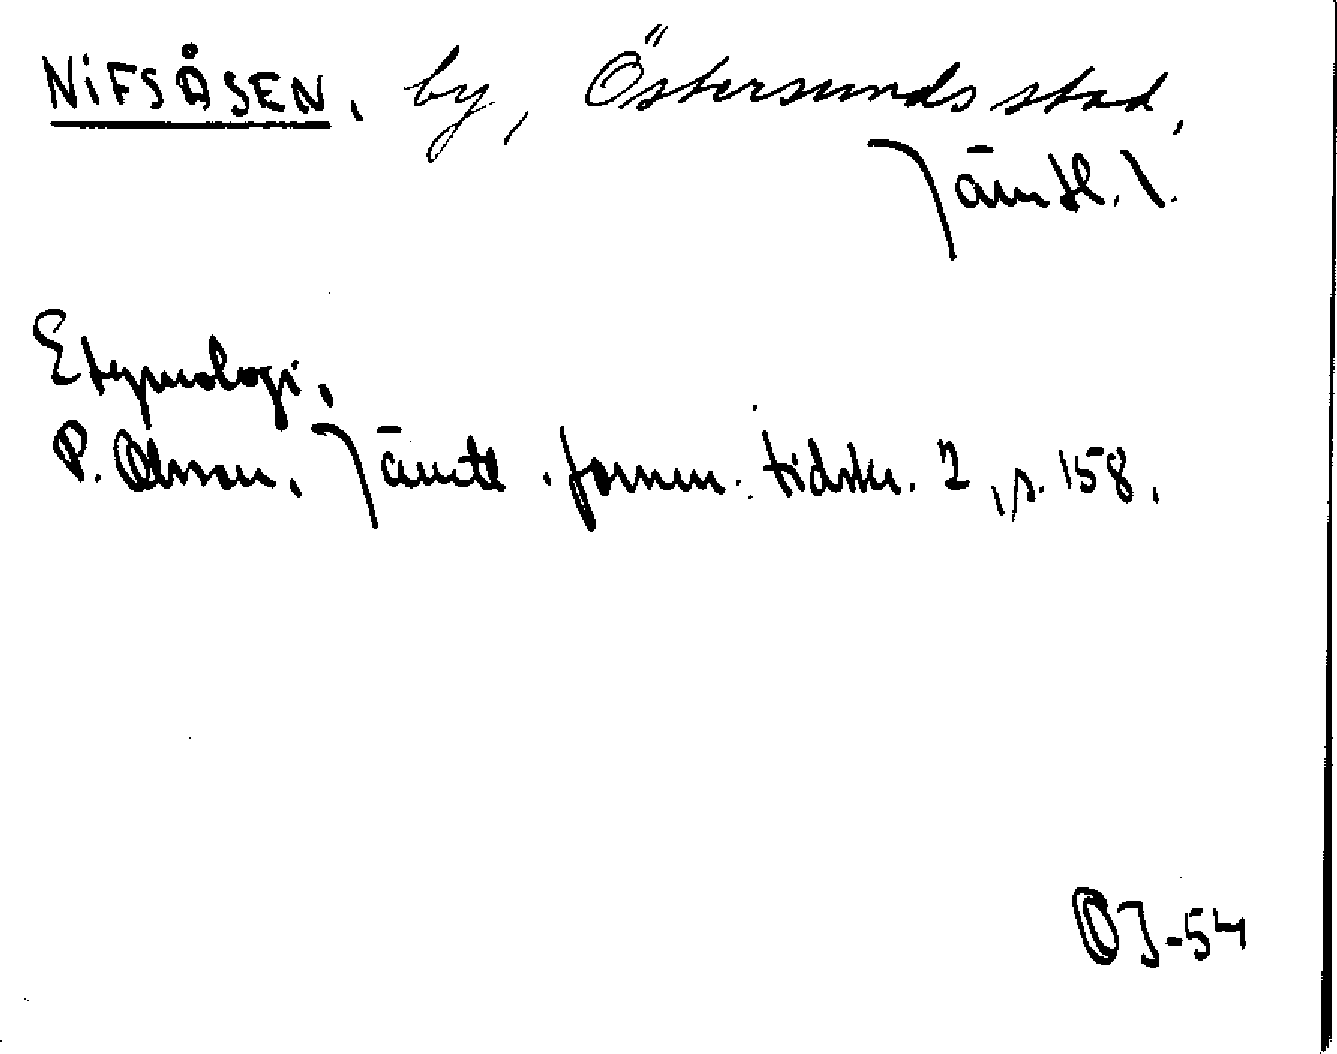 NIFSÅSEN, by, Östersunds stad,
Jämtl. l.
Etymologi.
P. Olsson, Jämtl. fornm. tidskr. 2, s. 158.
OJ-54